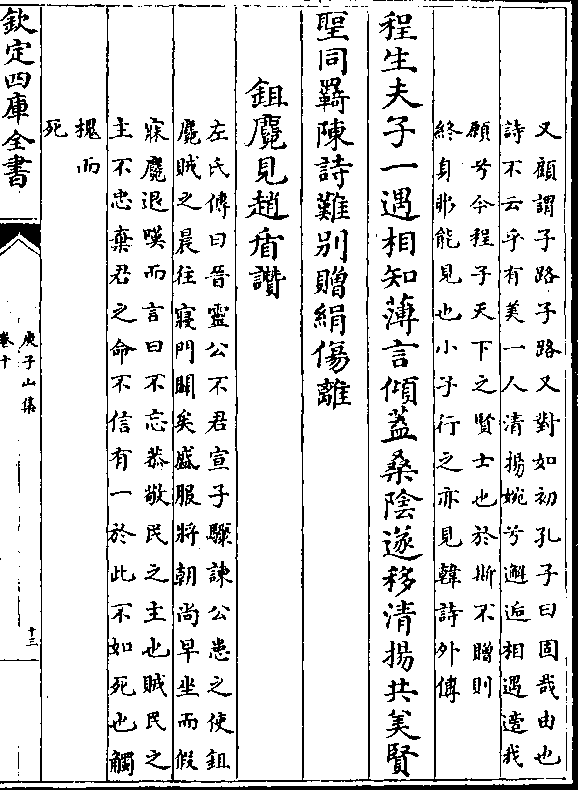 又顧謂子路子路又對如初孔子曰固哉由也
詩不云乎有美一人清揚婉兮邂逅相遇適我
願兮今程子天下之賢士也於斯不贈則
終身弗能見也小子行之亦見韓詩外傳
程生夫子一遇相知薄言傾蓋桑陰遂移清揚共美賢
聖同羇陳詩難別贈絹傷離
鉏麑見趙盾讚
左氏傳曰晉靈公不君宣子驟諫公患之使鉏
麑賊之晨往寢門闢矣盛服將朝尚早坐而假
寐麑退嘆而言曰不忘恭敬民之主也賊民之
主不忠棄君之命不信有一於此不如死也觸
槐而
死
欽定四庫全書
庾子山集
卷十
十三